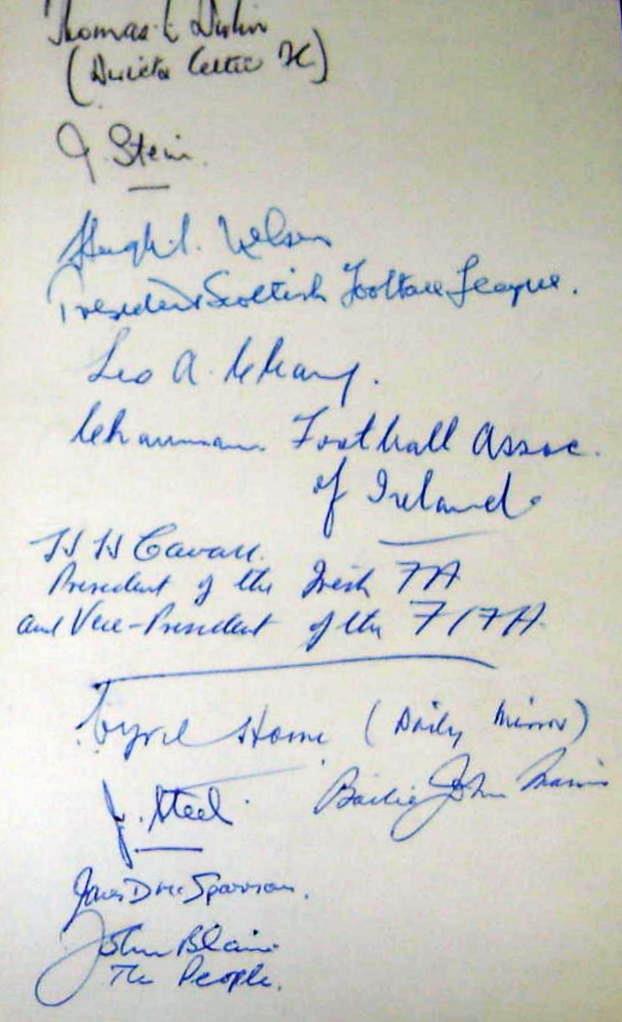 Thomas L Devlin
(Director Celtic FC)
J. Stein.
Hugh S. Nelson
President Scottish Football League.
Leo A.
Chairman Football Assoc.
of Ireland.
H H Cavan.
President of the Irish FA
and Vice-President of the FIFA
Cyril Horne (Daily Mirror)
J. Steel. Bailie John
James Sparrow.
John Blair
The People.